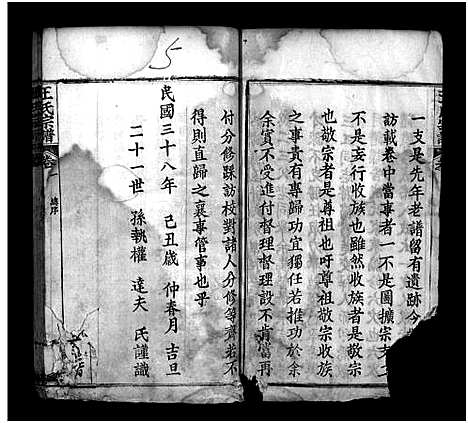 一支是先年老譜留有遺跡今
訪載卷中當事者一不是圖擴宗支二
不是妄行收族也雖然收族者是敬宗
也敬宗者是尊祖也吁尊祖敬宗收族
之事貴有專歸功宜獨任若推功於余
余實不受進付督理督理設不肯當再
付分修縣訪校對諸人分修等齊若不
得則直歸之襄事管事也乎
民國三十八年 己丑歲 仲春月 吉旦
二十一世 孫執權 達夫 氏謹識
王氏宗譜
5